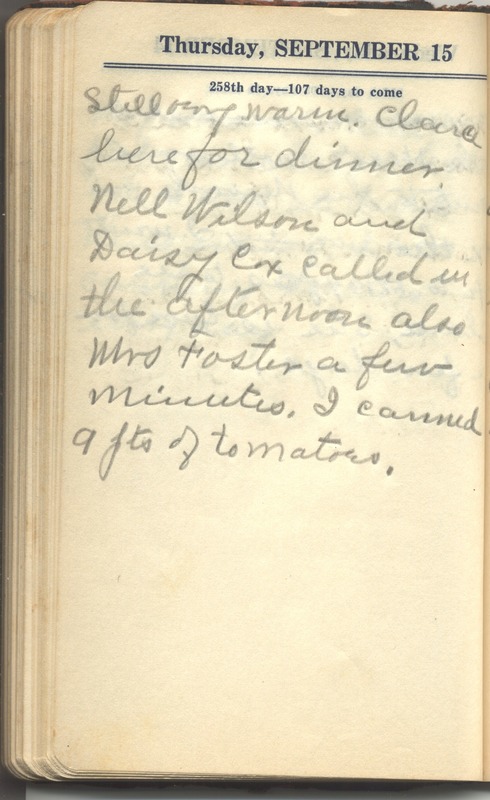 Thursday, SEPTEMBER 15
258th day—107 days to come
Still very warm. Clara
here for dinner.
Nell Wilson and
Daisy Cox called in
the afternoon also
Mrs Foster a few
minutes. I canned
9 pts of tomatoes.